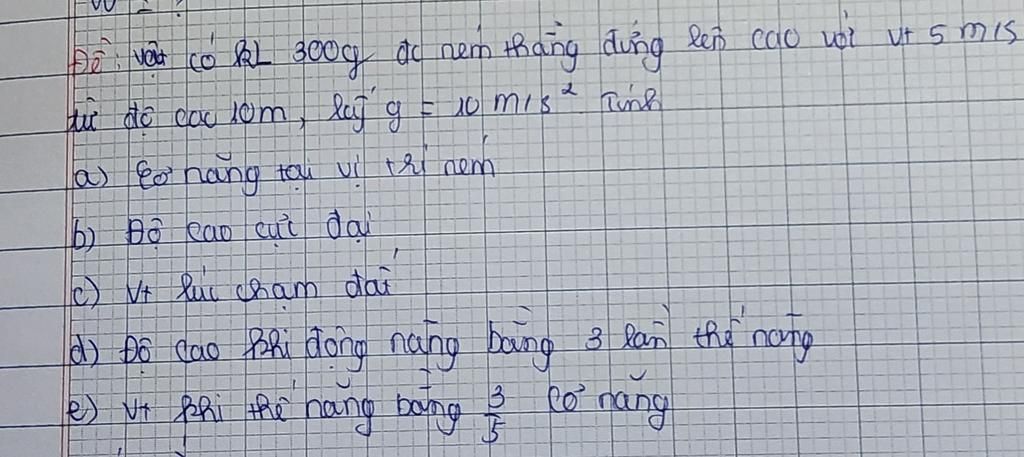 Đề: vật có KL 300g đc ném thẳng đứng lên cao với vt 5 m/s
từ độ cao 10m, lấy g = 10 m/s² Tính
a) Cơ năng tại vị trí ném
b) Độ cao cực đại
c) Vt lúc chạm đất
d) Độ cao khi động năng bằng 3 lần thế năng
e) Vt khi thế năng bằng 3/5 cơ năng